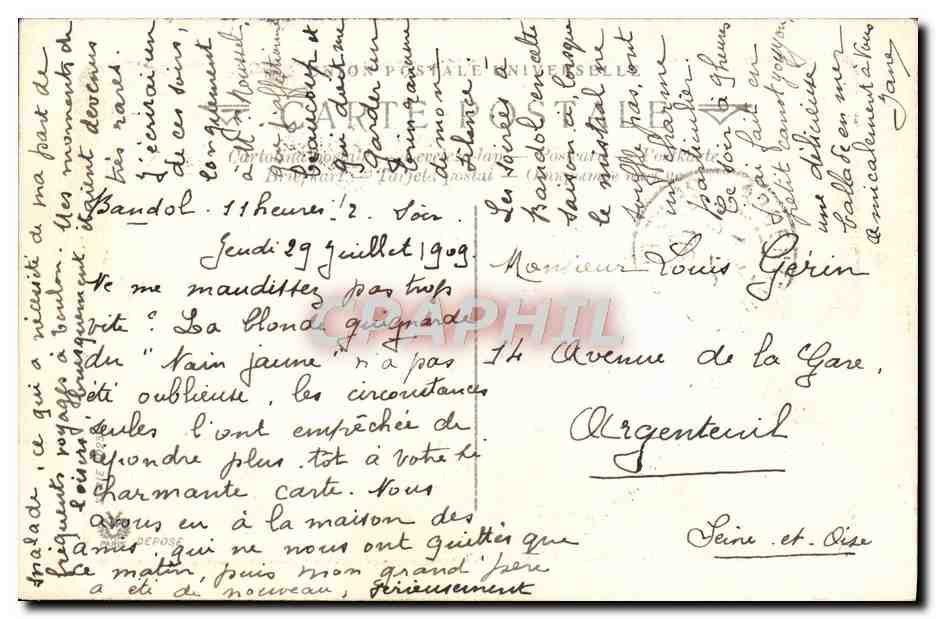 UNION POSTALE UNIVERSELLE
CARTE POSTALE
Postcard - Postkarte
Briefkart - Tarjeta postal
Bandol. 11 heures 1/2. Soir.
Jeudi 29 Juillet 1909.
Ne me maudissez pas trop
vite ! La blonde guignarde
du "Nain jaune" n'a pas
été oublieuse, les circonstances
seules l'ont empêchée de
répondre plus tôt à votre si
charmante carte. Nous
avons eu à la maison des
amis, qui ne nous ont quittés que
ce matin, puis mon grand'père
a été de nouveau, sérieusement
malade, ce qui a nécessité de ma part de
fréquents voyages à Toulon. Mes moments de
loisirs, brusquement étaient devenus
très rares.
J'écrirai un
de ces soirs,
longuement
à Mr Rousset,
affectionne
beaucoup et
qui doit me
garder un
de mon
silence.
Les soirées à
Bandol, en cette
saison, lorsque
le mistral ne
souffle pas, ont
un charme
particulier.
Ce soir à 9 heures
j'ai fait en
petit canot
une délicieuse
ballade en mer.
amicalement à vous
Jane
Monsieur Louis Gérin
14 Avenue de la Gare,
Argenteuil
Seine-et-Oise
CPAPHIL
PARIS DEPOSE